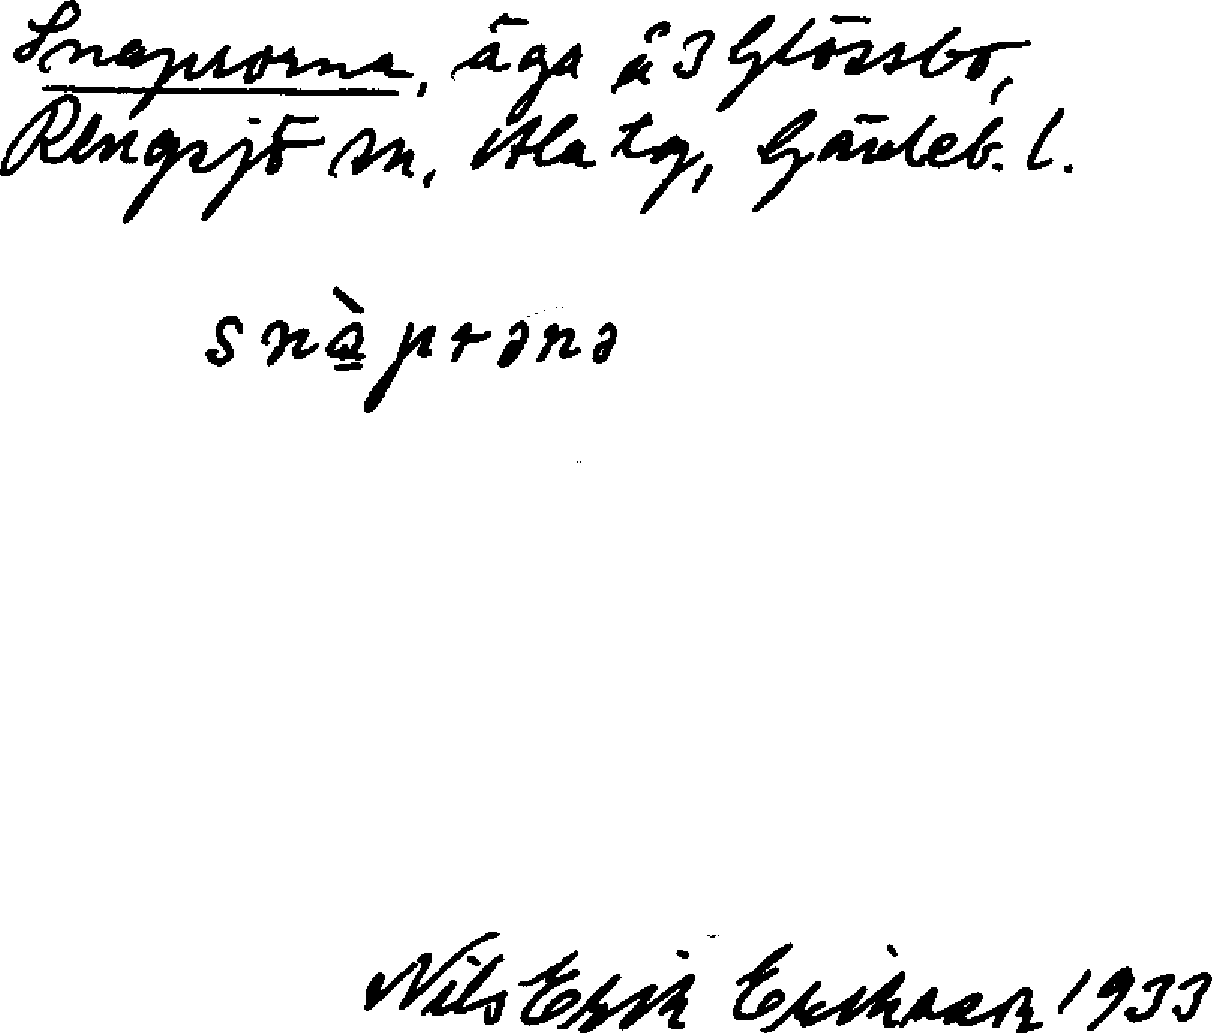 Snaprorna, äga å 3 Glössbo,
Rengsjö sn, Ala tg, Gävleb. l.
snàprənə
Nils Erik Eriksson 1933